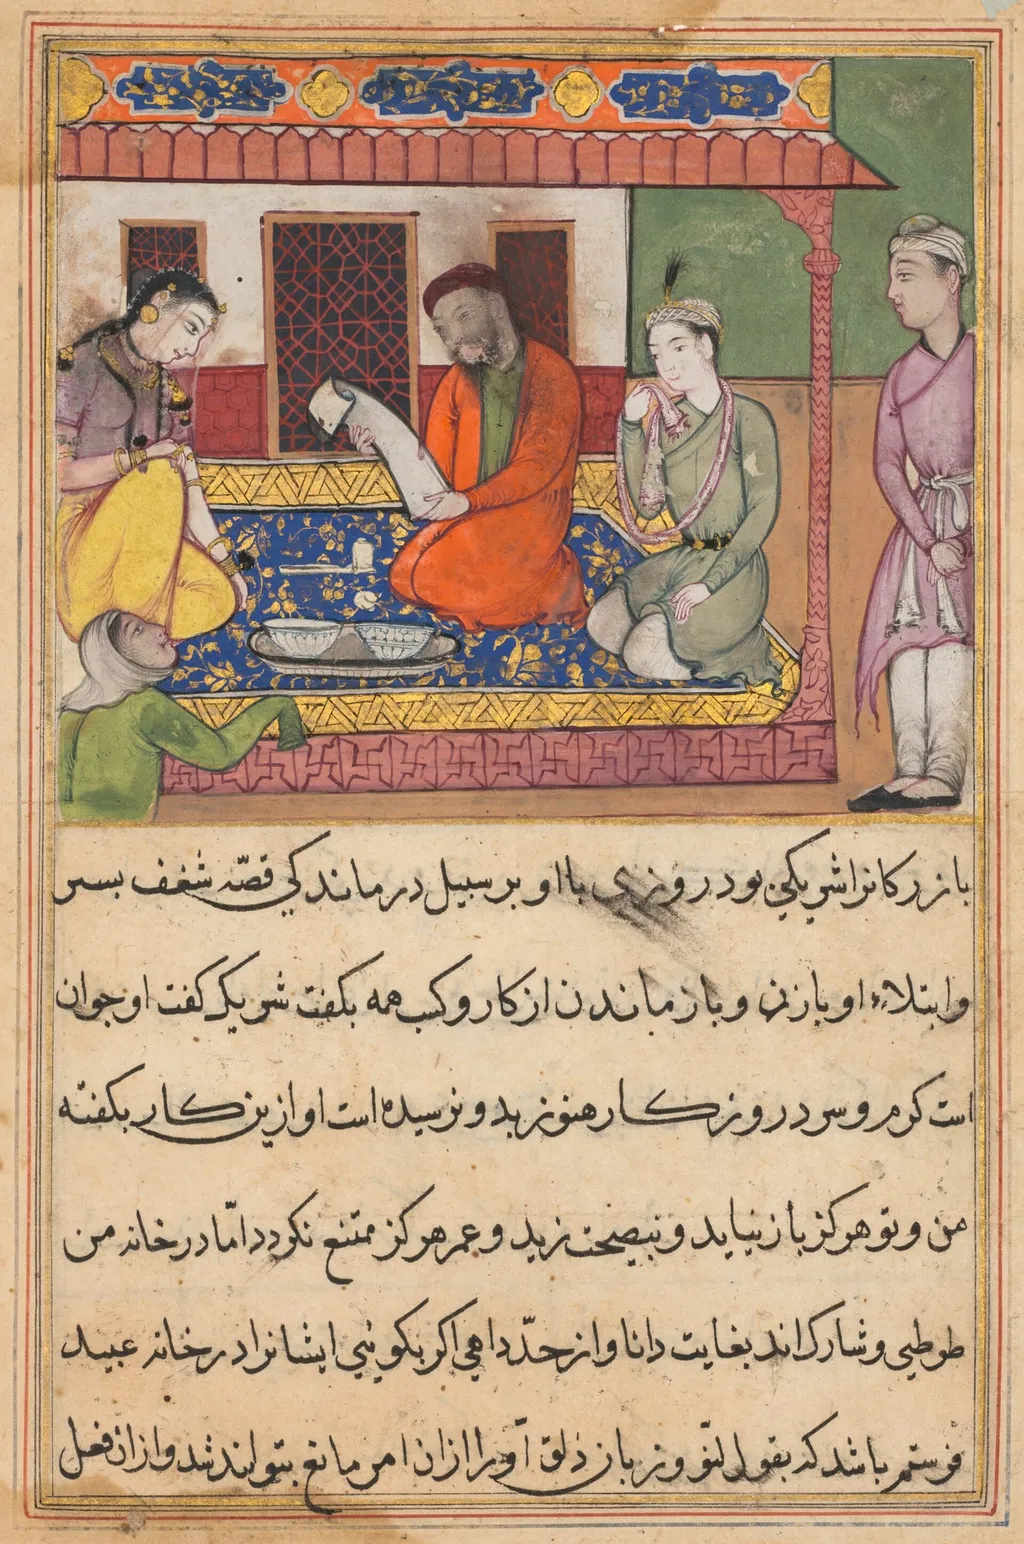 بازرکانرا شریکی بود روزی با او بر سبیل درماندکی قصّه شغف پسر
وابتلاء او بازن و بازماندن از کار و کسب همه بکفت شریک کفت او جوان
است کرم و سرد روزکار هنوز بدو نرسیده است او ازین کار بکفته
من و تو هرکز باز نیاید و بنصیحت زید و عمر هرکز ممتنع نکردد امّا در خانه من
طوطیی و شارک اند بغایت دانا و از حدّ داهی اکر بکوئیی ایشانرا در خانه عبید
فرستم باشد که بقول لیّن و زبان ذلق او را ازان امر مانع بتوانند شد و ازان فعل